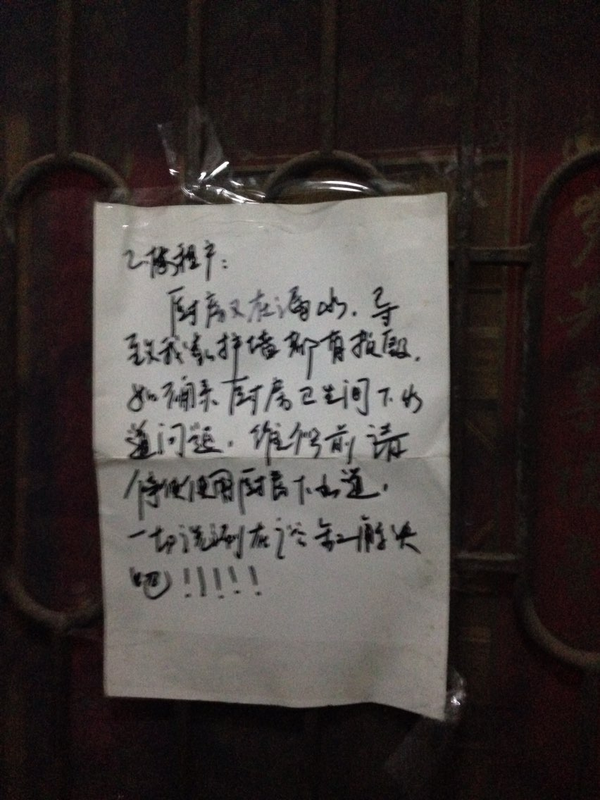 2楼租户：
厨房又在漏水，导
致我家护墙都有损毁，
如确系厨房卫生间下水
道问题，维修前请
停使用厨房下水道，
一切洗涮在浴缸解决
吧！！！！！！